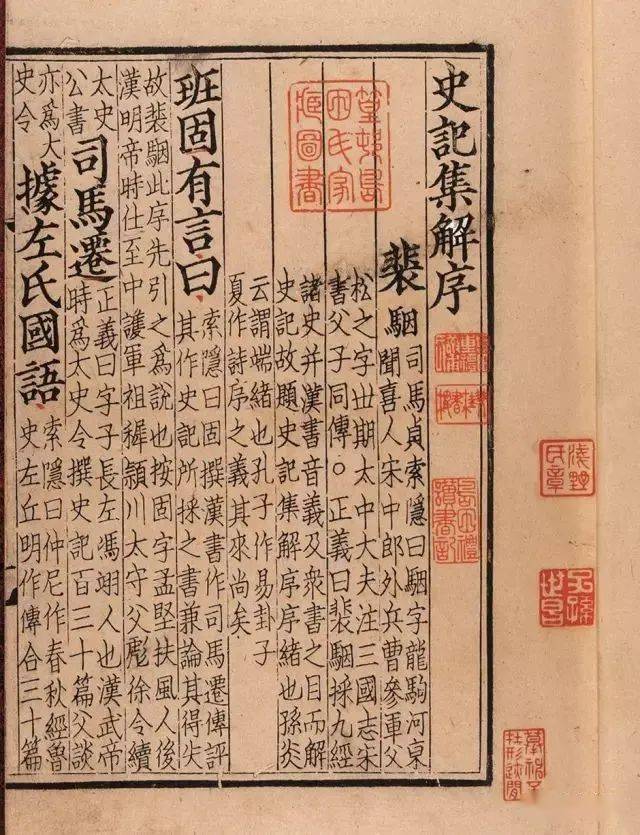 史記集解序
裴駰
司馬貞索隱曰駰字龍駒河東
聞喜人宋中郎外兵曹參軍父
松之字丗期太中大夫注三國志宋
書父子同傳○正義曰裴駰採九經
諸史并漢書音義及衆書之目而解
史記故題史記集解序序緒也孫炎
云謂端緒也孔子作易卦子
夏作詩序之義其來尚矣
班固有言曰
索隱曰固撰漢書作司馬遷傳評
其作史記所採之書兼論其得失
故裴駰此序先引之爲說也按固字孟堅扶風人後
漢明帝時仕至中護軍祖穉頴川太守父彪徐令續
太史
公書
司馬遷
正義曰字子長左馮翊人也漢武帝
時爲太史令撰史記百三十篇父談
亦爲大
史令
據左氏國語
索隱曰仲尼作春秋經魯
史左丘明作傳合三十篇
篁邨島田氏家藏圖書
島田重禮
讀書記